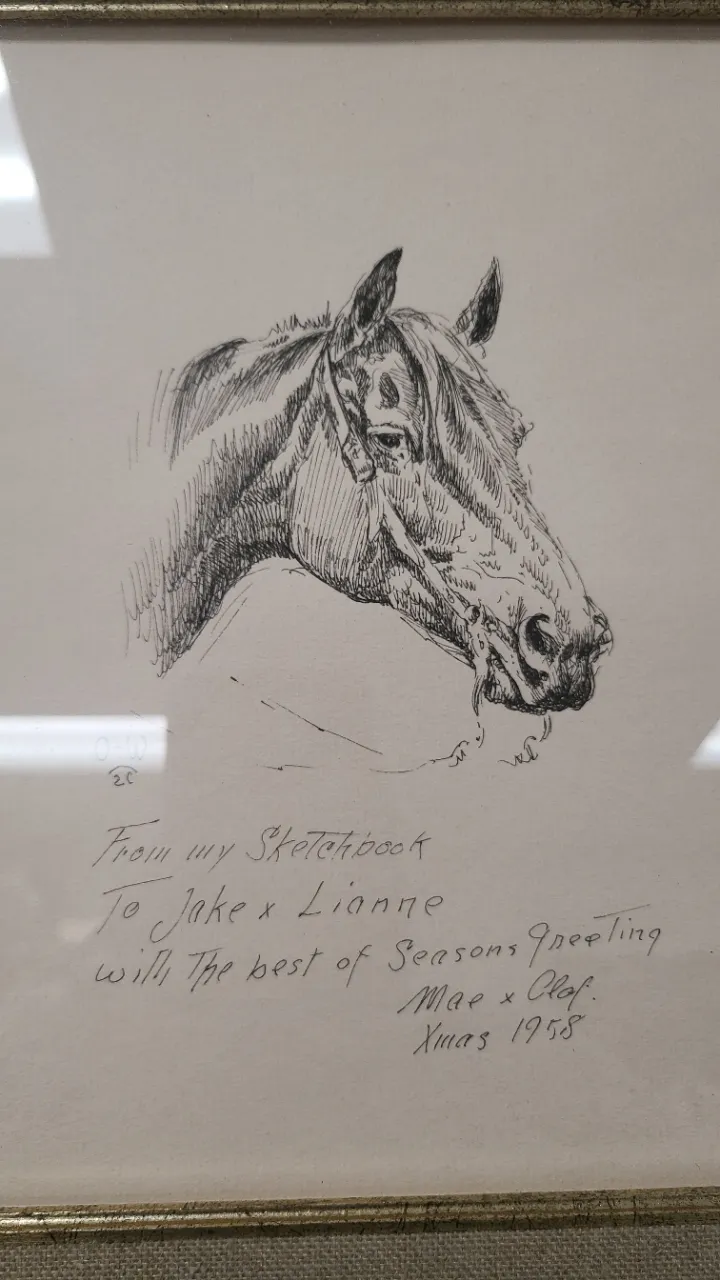 From my Sketchbook
To Jake x Lianne
with The best of Seasons Greeting
Mae x Olaf.
Xmas 1958